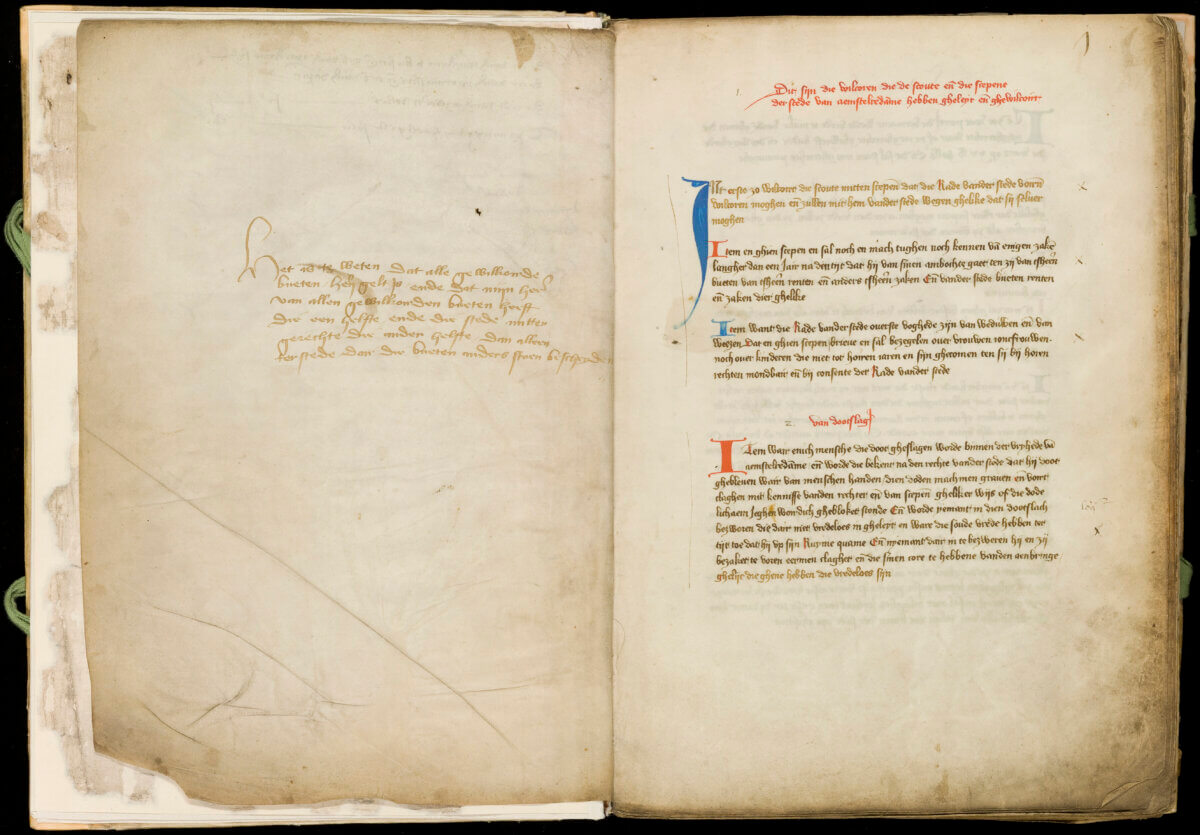 Het is te weten dat alle gewilkoirde
bueten half gelt is ende dat mijn here
van allen gewilkoirden bueten heeft
die een helfte ende die stede mitten
gerechte die ander helfte dan alleen
ter stede dair die bueten anders staen bescheyden
1
1.
Dit sijn die wilcoren die de scoute en̄ die scepene
der stede van aemstelredāme hebben gheleyt en̄ ghewilcoirt
Int eerste zo wilcoirt die scoute mitten scepen̄ dat die Rade vander stede voirn̄
wilcoren moghen en̄ zullen mit hem vander stede weghen ghelike dat sij selver
moghen
Item en ghien scepen en sal noch en mach tughen noch kennen vā enigen zake
langher dan een Jair na den tijt dat hij van sinen ambochte gaet ten zij van tsheren̄
bueten van tsheren̄ renten en̄ anders tsheren̄ zaken En̄ vander stede bueten renten
en̄ zaken dier ghelike
Item want die Rade vander stede overste voghede zijn van weduwen en̄ van
weezen Dat en ghien scepen brieve en sal bezegelen over vrouwen ioncfrouwen
noch over kinderen die niet tot hoiren iaren en sijn ghecomen ten sij bij horen
rechten mondbair en̄ bij consente der Rade vander stede
2. van dootslag
Item wair enich mensche die doot gheslagen worde binnen der vryhede vā
aemstelredāme en̄ worde die bekent na den rechte vander stede dat hij doot
ghebleven wair van menschen handen dien doden mach men graven en̄ voirt
claghen mit kennisse vanden rechter en̄ van scepen̄ gheliker wijs of die dode
lichaem Jeghenwordich gheblokt stonde En̄ worde yemant in dien dootslach
bezworen die dair niet vredeloes in gheleyt en ware die soude vrede hebben ter
tijt toe dat hij up sijn Ruyme quame En̄ nyemant dair in te bezweren hij en zij
bezaket te voren eermen claghet en̄ die sinen core te hebbene vanden aenbringe
ghelijc die ghene hebben die vredeloes sijn